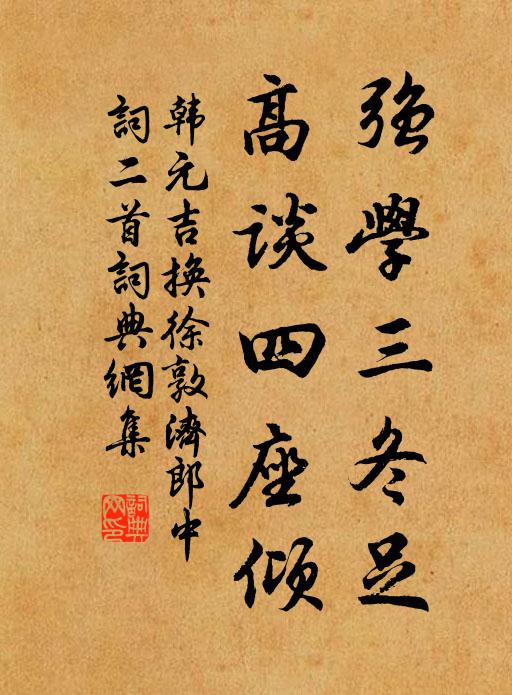 强學三冬足
高谈四座傾
韩元吉换徐敦濟郎中
詞二首詞典網集
詞典網印